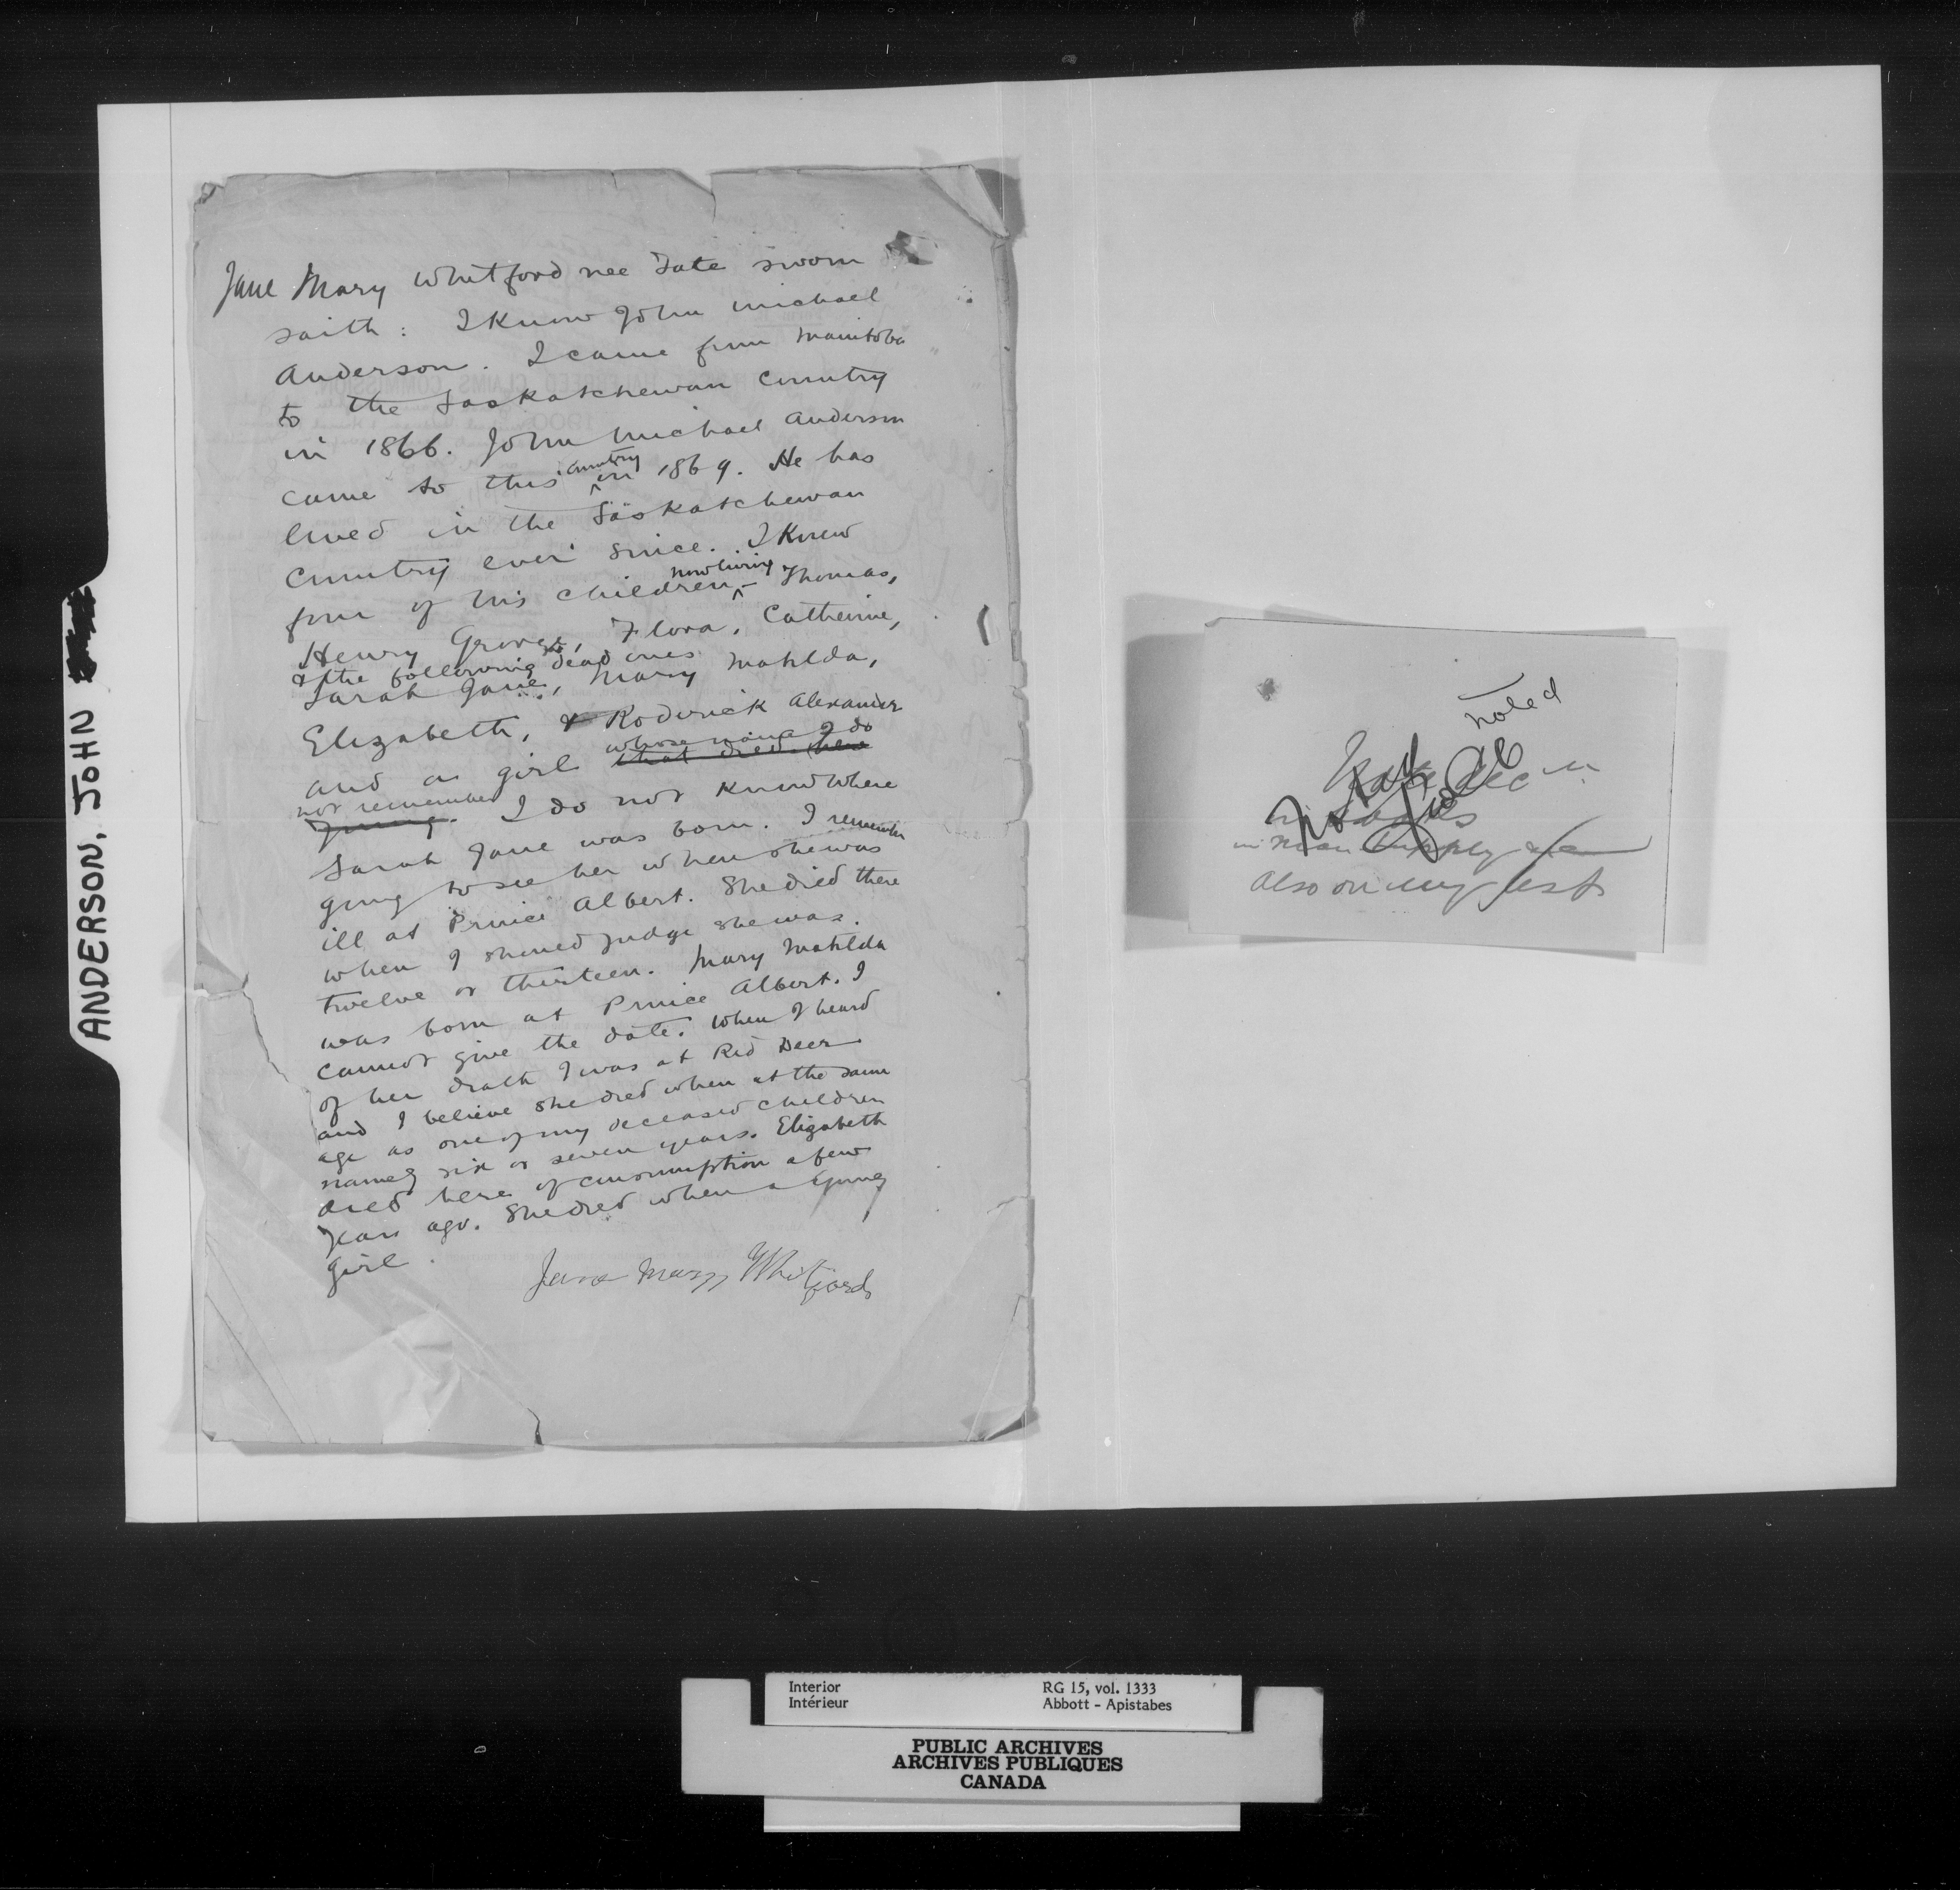 ANDERSON, JOHN
Jane Mary Whitford nee Tate sworn
saith : I know John Michael
Anderson. I came from Manitoba
to the Saskatchewan Country
in 1866. John Michael Anderson
came to this country in 1869. He has
lived in the Saskatchewan
Country ever since. I knew
four of his children now living – Thomas,
Henry George, Flora, Catherine,
& the following dead ones
Sarah Jane, Mary Matilda,
Elizabeth, & Roderick Alexander
and a girl that died here whose name I do
not remember young. I do not know where
Sarah Jane was born. I remember
going to see her when she was
ill at Prince Albert. She died there
when I should judge she was
twelve or thirteen. Mary Matilda
was born at Prince Albert. I
cannot give the date. When I heard
of her death I was at Red Deer
and I believe she died when at the same
age as one of my deceased children
namely six or seven years. Elizabeth
died here of consumption a few
years ago. She died when a young
girl.
Jane Mary Whitford
noted
also on my list
Interior
Intérieur
RG 15, vol. 1333
Abbott - Apistabes
PUBLIC ARCHIVES
ARCHIVES PUBLIQUES
CANADA